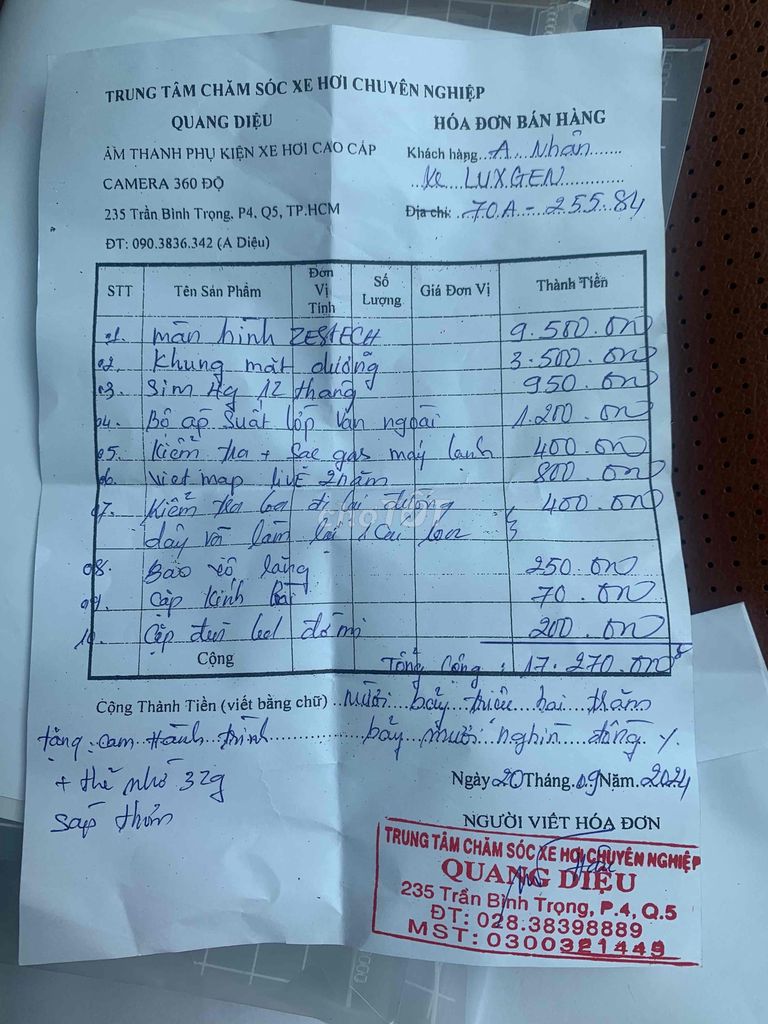 TRUNG TÂM CHĂM SÓC XE HƠI CHUYÊN NGHIỆP
QUANG DIỆU
HÓA ĐƠN BÁN HÀNG
ÂM THANH PHỤ KIỆN XE HƠI CAO CẤP
Khách hàng...A. Nhân......
CAMERA 360 ĐỘ
...Xe...LUXGEN............
235 Trần Bình Trọng, P4, Q5, TP.HCM
Địa chỉ: .70A - 255.84
ĐT: 090.3836.342 (A Diệu)
STT Tên Sản Phẩm Đơn Vị Tính Số Lượng Giá Đơn Vị Thành Tiền
01. màn hình ZESTECH 9.500.000
02. Khung mặt dưỡng 3.500.000
03. Sim 4g 12 tháng 950.000
04. Bộ áp suất lốp van ngoài 1.200.000
05. Kiểm tra + sạc gas máy lạnh 400.000
06. Vietmap live 2 năm 800.000
07. Kiểm tra loa đi lại đường 400.000
dây và làm lại 1 cái loa
choTỐT
08. Bao vô lăng 250.000
09. Cặp kính 70.000
10. Cặp đèn led 200.000
Cộng Tổng Cộng: 17.270.000đ
Cộng Thành Tiền (viết bằng chữ) ..Mười bảy triệu hai trăm
bảy mươi nghìn đồng
tặng: cam Hành trình
+ thẻ nhớ 32g
Ngày 20 Tháng .09 Năm. 2024
NGƯỜI VIẾT HÓA ĐƠN
TRUNG TÂM CHĂM SÓC XE HƠI CHUYÊN NGHIỆP
QUANG DIỆU
235 Trần Bình Trọng, P.4, Q.5
ĐT: 028.38398889
MST: 0300321449